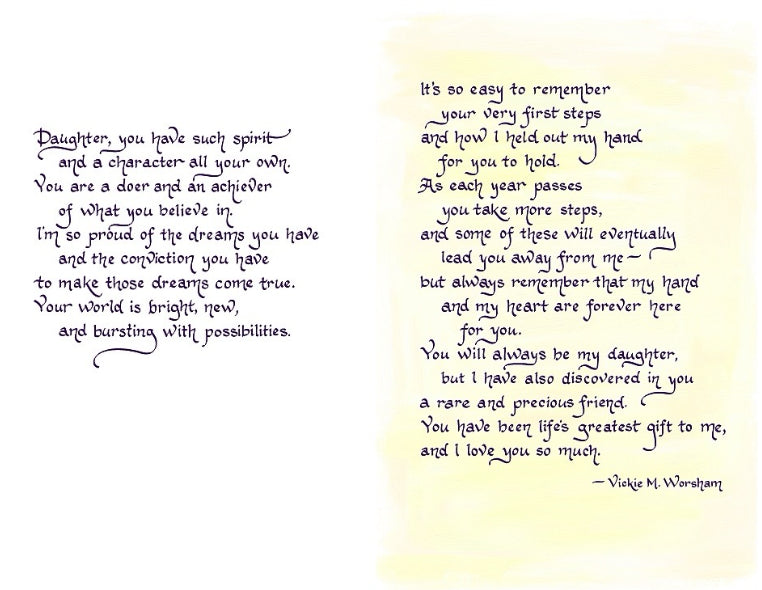 Daughter, you have such spirit
and a character all your own.
You are a doer and an achiever
of what you believe in.
I'm so proud of the dreams you have
and the conviction you have
to make those dreams come true.
Your world is bright, new,
and bursting with possibilities.
It's so easy to remember
your very first steps
and how I held out my hand
for you to hold.
As each year passes
you take more steps,
and some of these will eventually
lead you away from me—
but always remember that my hand
and my heart are forever here
for you.
You will always be my daughter,
but I have also discovered in you
a rare and precious friend.
You have been life's greatest gift to me,
and I love you so much.
— Vickie M. Worsham